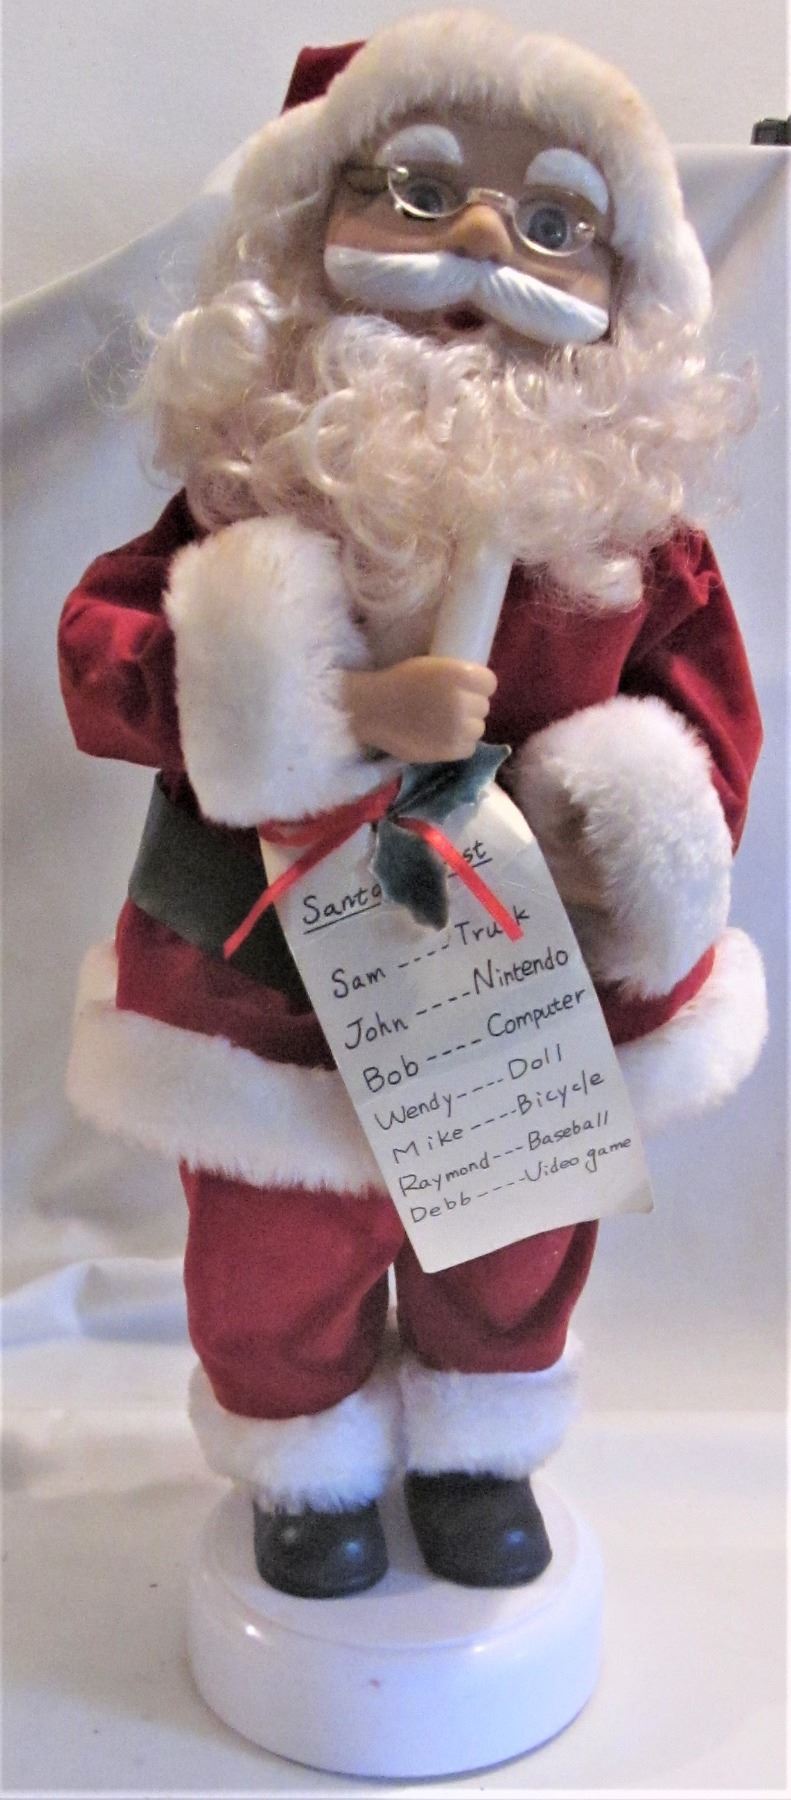 Santa st
Sam ---- Truck
John ---- Nintendo
Bob ---- Computer
Wendy ---- Doll
Mike ---- Bicycle
Raymond --- Baseball
Debb ---- Video game